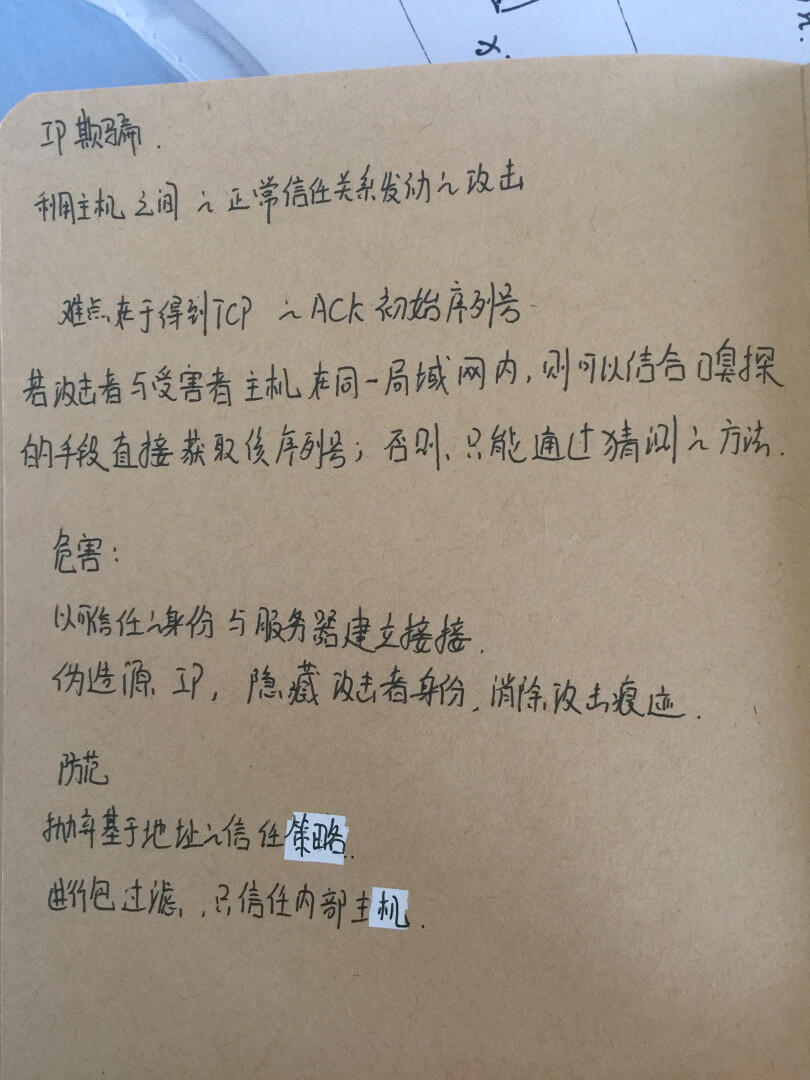 IP欺骗.
利用主机之间之正常信任关系发动之攻击
难点在于得到TCP之ACK初始序列号
若攻击者与受害者主机在同一局域网内,则可以结合嗅探
的手段直接获取该序列号;否则、只能通过猜测之方法.
危害:
以可信任之身份与服务器建立接接.
伪造源IP,隐藏攻击者身份,消除攻击痕迹.
防范
抛弃基于地址之信任策略.
进行包过滤,只信任内部主机.